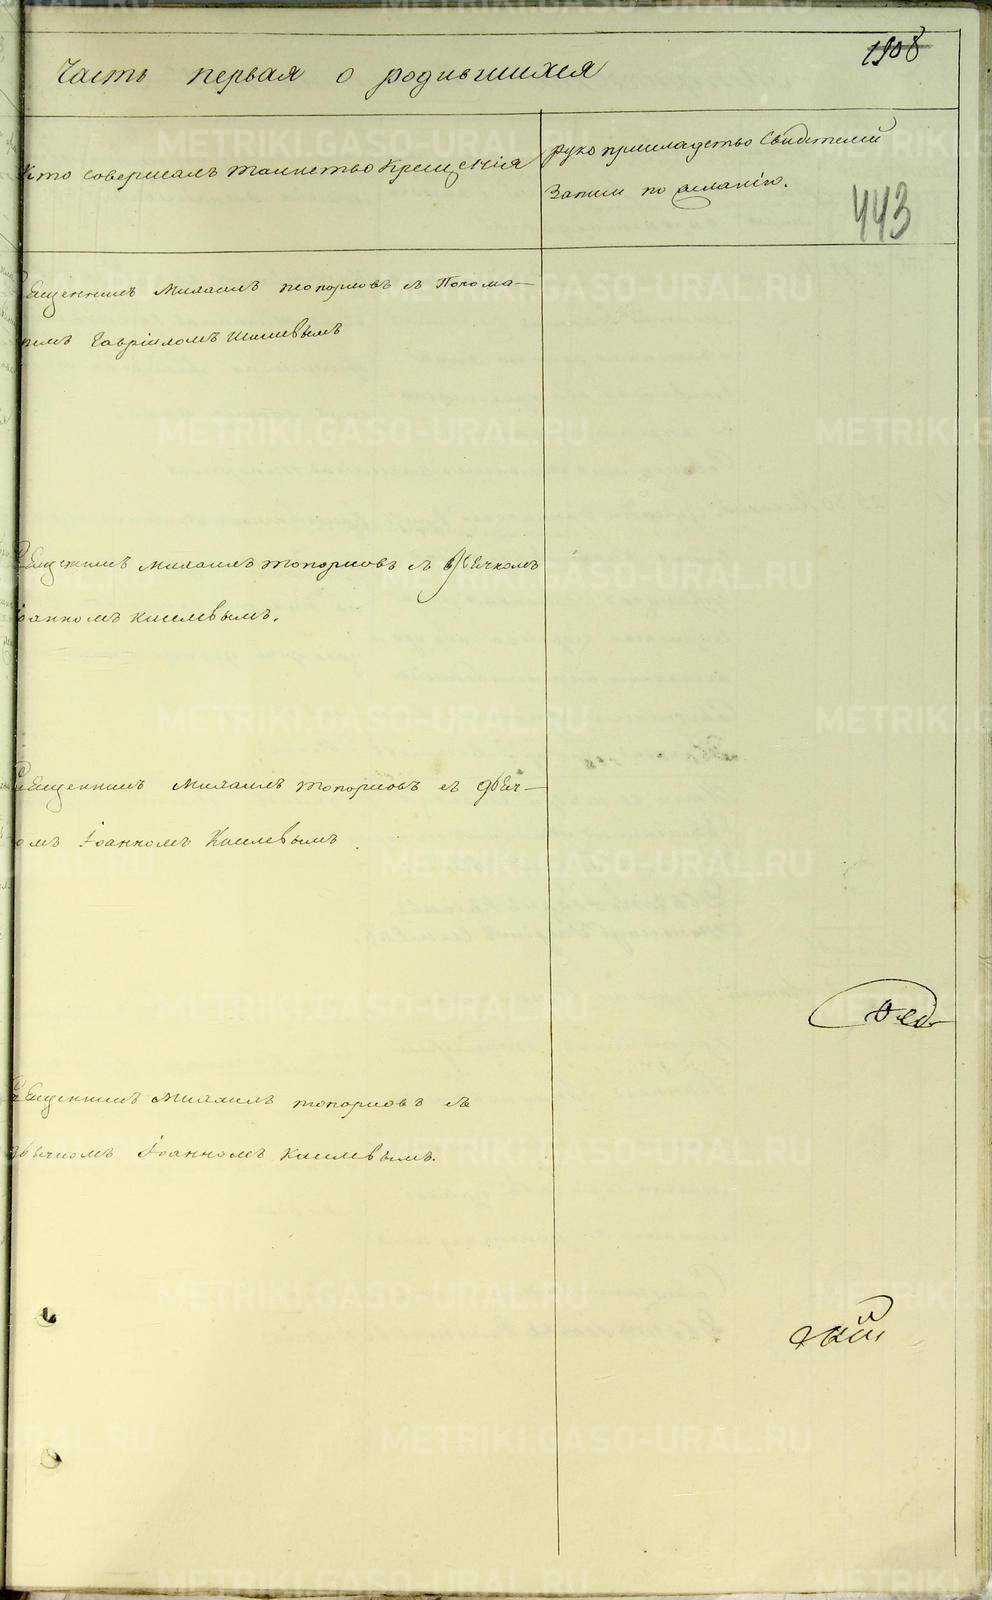 1908
Часть первая о родившихся
Кто совершалъ таинство крещенія
рукоприкладство свидетелей
записи по желанію.
443
Священникъ Михаилъ Топорковъ съ Понома-
Гавріиломъ
Священникъ Михаилъ Топорковъ съ дьячкомъ
Іоанномъ Киселевымъ.
Священникъ Михаилъ Топорковъ съ дьяч-
комъ Іоанномъ Киселевымъ
Священникъ Михаилъ Топорковъ съ
дьячкомъ Іоанномъ Киселевымъ.
METRIKI.GASO-URAL.RU